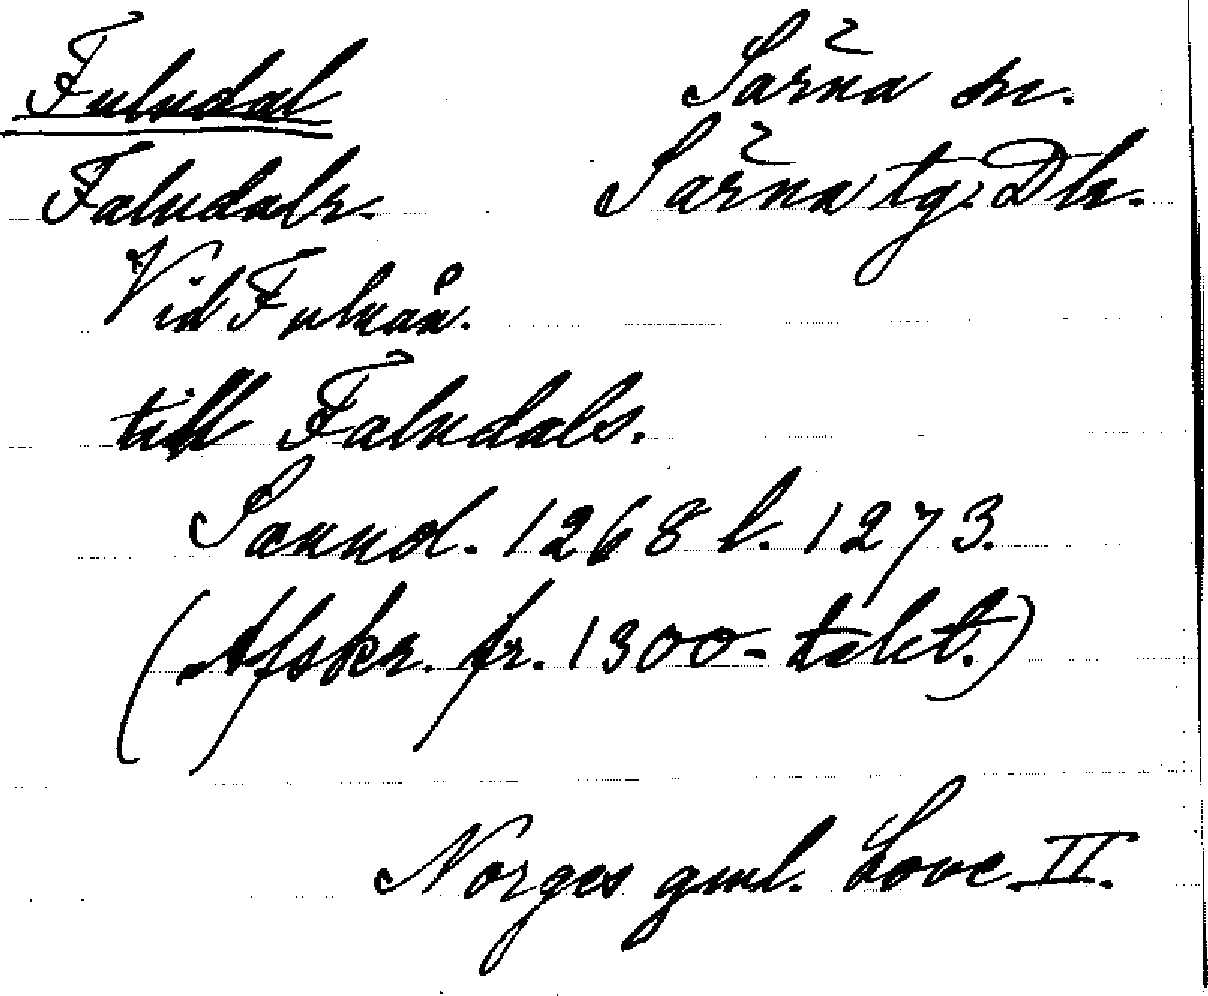 Fuludal Särna sn.
Faludals. Särna tg. Dla.
Vid Fuluån.
till Faludals.
Sannol. 1268 l. 1273.
(Afskr. fr. 1300-talet.)
Norges gml. Love II.